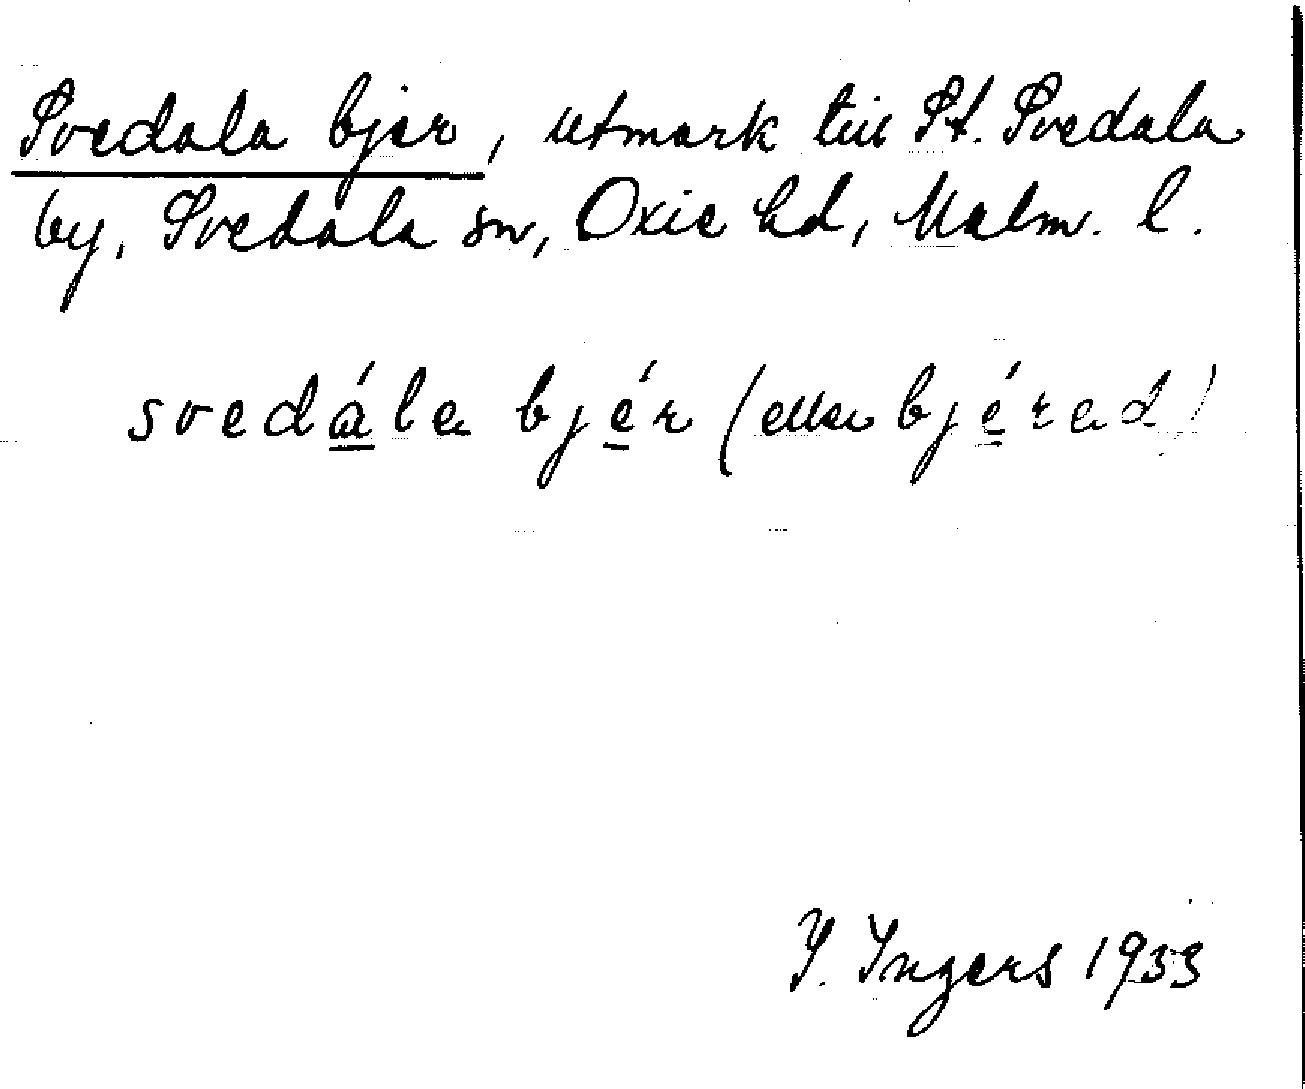 Svedala bjer, utmark till St. Svedala
by, Svedala sn, Oxie hd, Malm. l.
svedála bjér (eller bjérad)
I. Ingers 1933